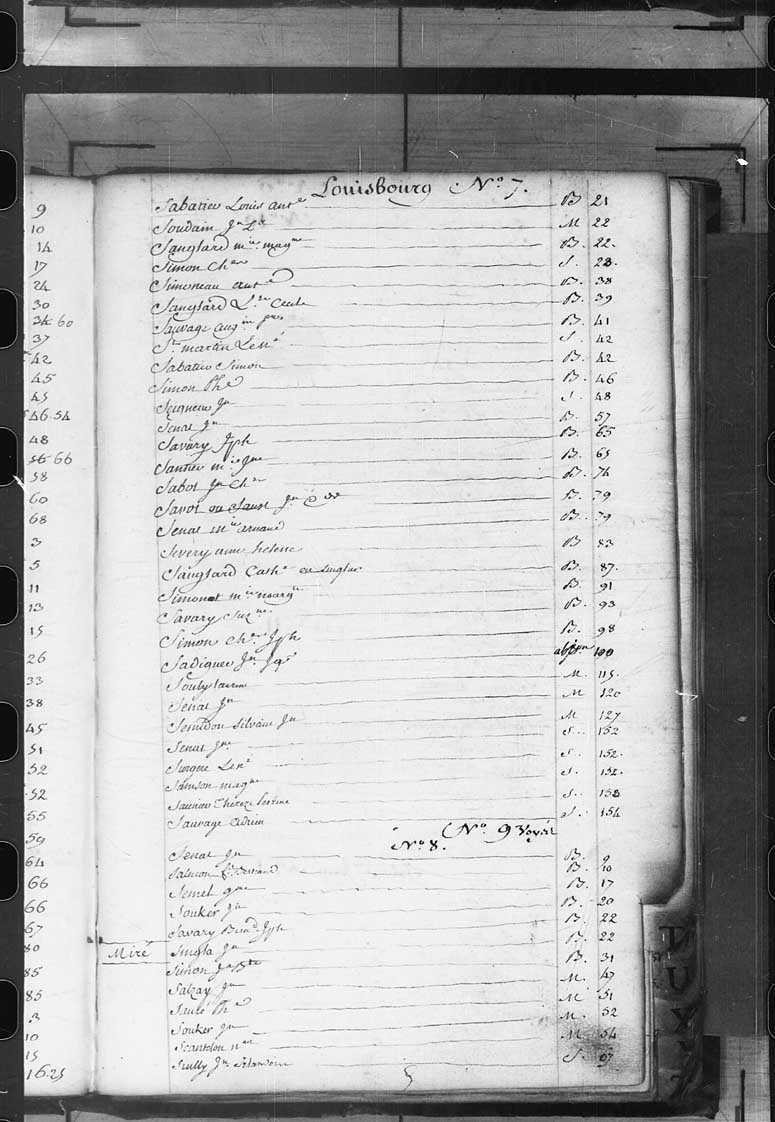 9
10
14
17
24
30
34 60
37
42
45
45
46.54
48
56 66
58
60
68
3
5
11
13
15
26
33
38
45
51
52
52
55
59
64
66
66
67
80
85
85
3
10
15
16.25
Louisbourg No. 7.
Sabatier Louis ant.e B 21
Soudain Jn M 22
Sanglard m.ie magne B. 22.
Simon Ch.er S. 28.
Simoneau ant.e B. 38
Sanglard Cecile B. 39
Sauvage B. 41
St martin S. 42
Sabatier Simon B. 42
Simon Phe B. 46
Seigneur Jn S. 48
Senat Jn B. 57
Savary Jph B. 65
Santier m.ie Jne B. 65
Sabot Jn Ch.er B. 74
Savot ou Sauot Jn B. 79
Senat m.ie arnaud B. 79
Severy anne helene B 83
Sanglard Cathe B. 87.
Simonet m.ie margte B 91
Savary Suz.ne B. 93
Simon Ch.es Jph B. 98
Sadiguer Jn Jqs 100
M. 115.
Senat Jn M 120
Semidon Silvain Jn M 127
Senat Jne S. 152
Surgere S. 152.
Samson magne S. 152.
Saunier Thereze S. 158
Sauvage Adrien S. 154
(No. 9 3 voyés
No. 8.
Senat Jn B. 9
Salmon Bertrand B. 10
Semet B. 17
Souker Jn B. 20
Savary Bern.d Jph B. 22
Miré Singla Jn B. 22
Simon Jn Bte B. 31
Salzay Jn M. 47
Sauzé Phe M 51
Souker Jn M. 52
Scantelon M 54
Scully Jn S. 67